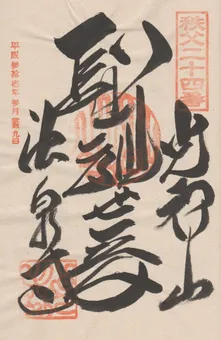 秩父二十四番
光智山
聖観世音
法泉寺
平成参拾壱年参月 九日